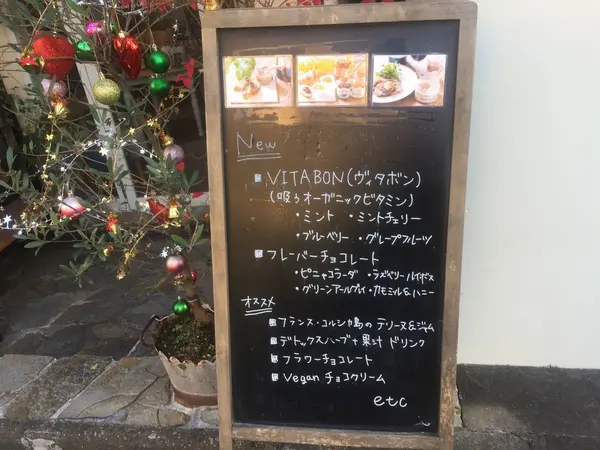 New
VITABON(ヴィタボン)
(吸うオーガニックビタミン)
・ミント ・ミントチェリー
・ブルーベリー ・グレープフルーツ
フレーバーチョコレート
・ピニャコラーダ ・ラズベリールイボス
・グリーンアールグレイ・カモミール&ハニー
オススメ
フランス・コルシカ島の テリーヌ&ジャム
デトックスハーブ+果汁 ドリンク
フラワーチョコレート
Vegan チョコクリーム
etc